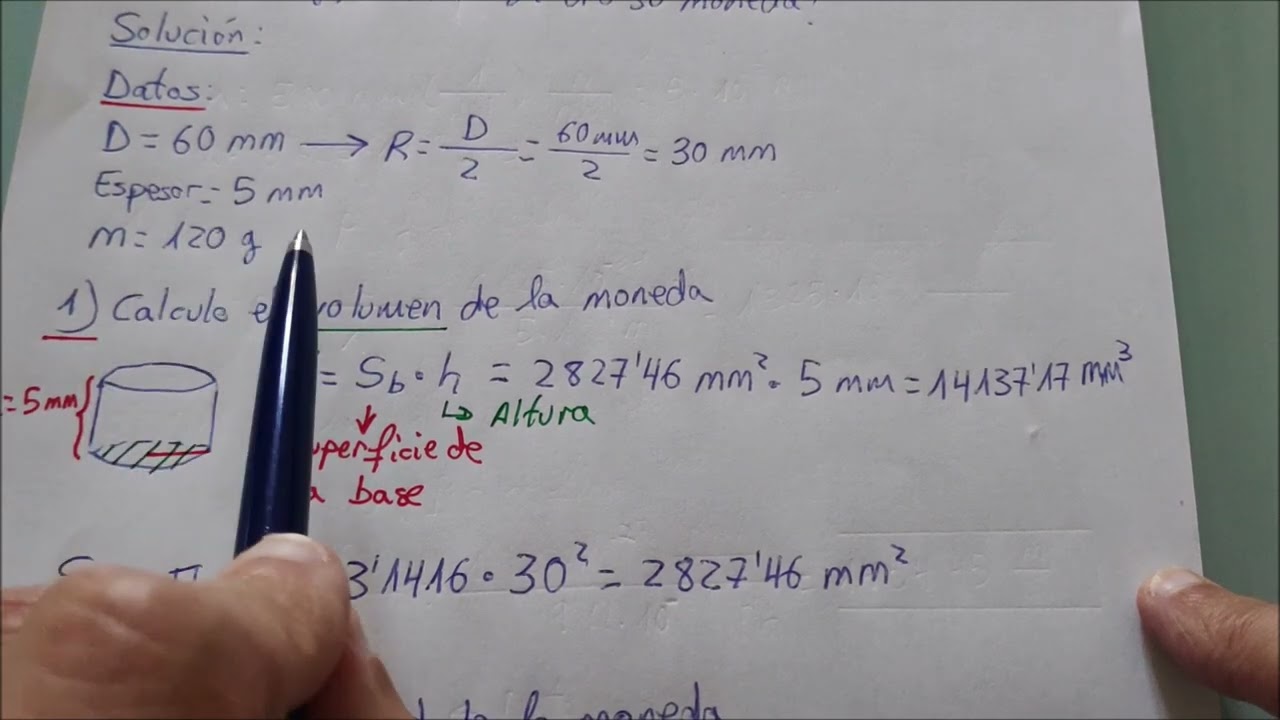 de oro su moneda?
Solución:
Datos:
D = 60 mm → R = D/2 = 60 mm/2 = 30 mm
Espesor = 5 mm
m = 120 g
1) Calculo volumen de la moneda
= 5 mm
= Sb · h = 2827'46 mm² · 5 mm = 14137'17 mm³
↳ Altura
uperficie de
a base
3'1416 · 30² = 2827'46 mm²
de la moneda